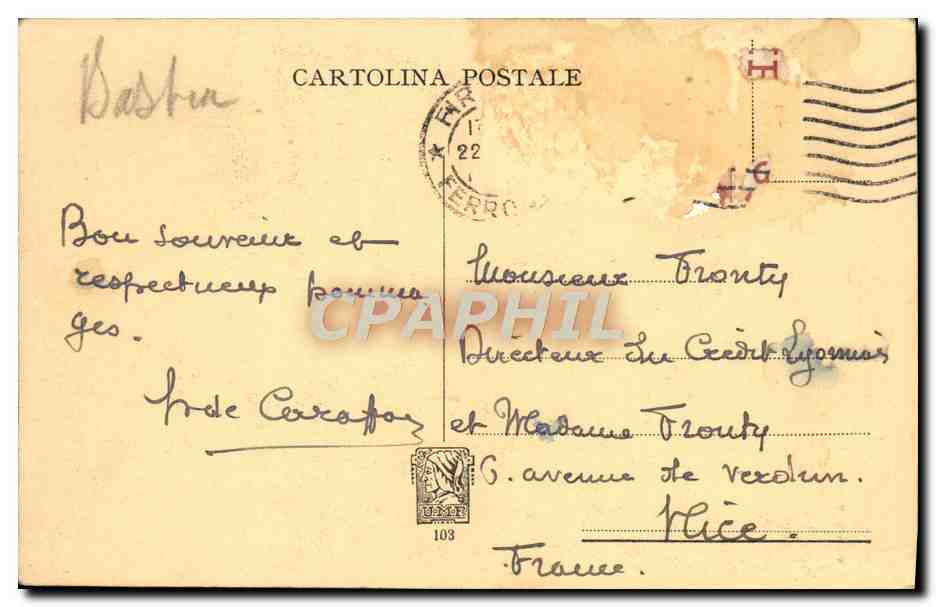 CARTOLINA POSTALE
FIR
22
FERRO
Bon souvenir et
respectueux homma
ges.
de
Monsieur Fronty
Directeur du Crédit Lyonnais
et Madame Fronty
6. avenue de Verdun.
Nice.
France.
CPAPHIL
U.M.F.
103